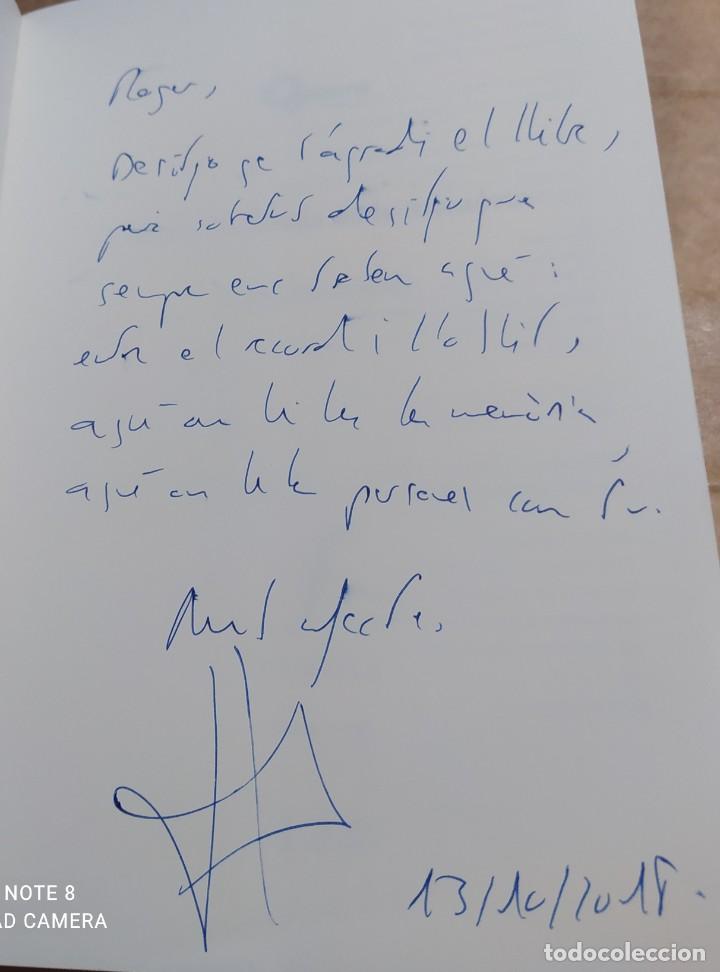 Roger,
Desitjo que t'agradi el llibre,
però sobretot desitjo que
sempre ens trobem aquí:
entre el record i l'oblit,
aquí on hi ha la memòria,
aquí on hi ha persones com tu.
Molt afecte,
13/10/2018.
NOTE 8
AD CAMERA
todocoleccion